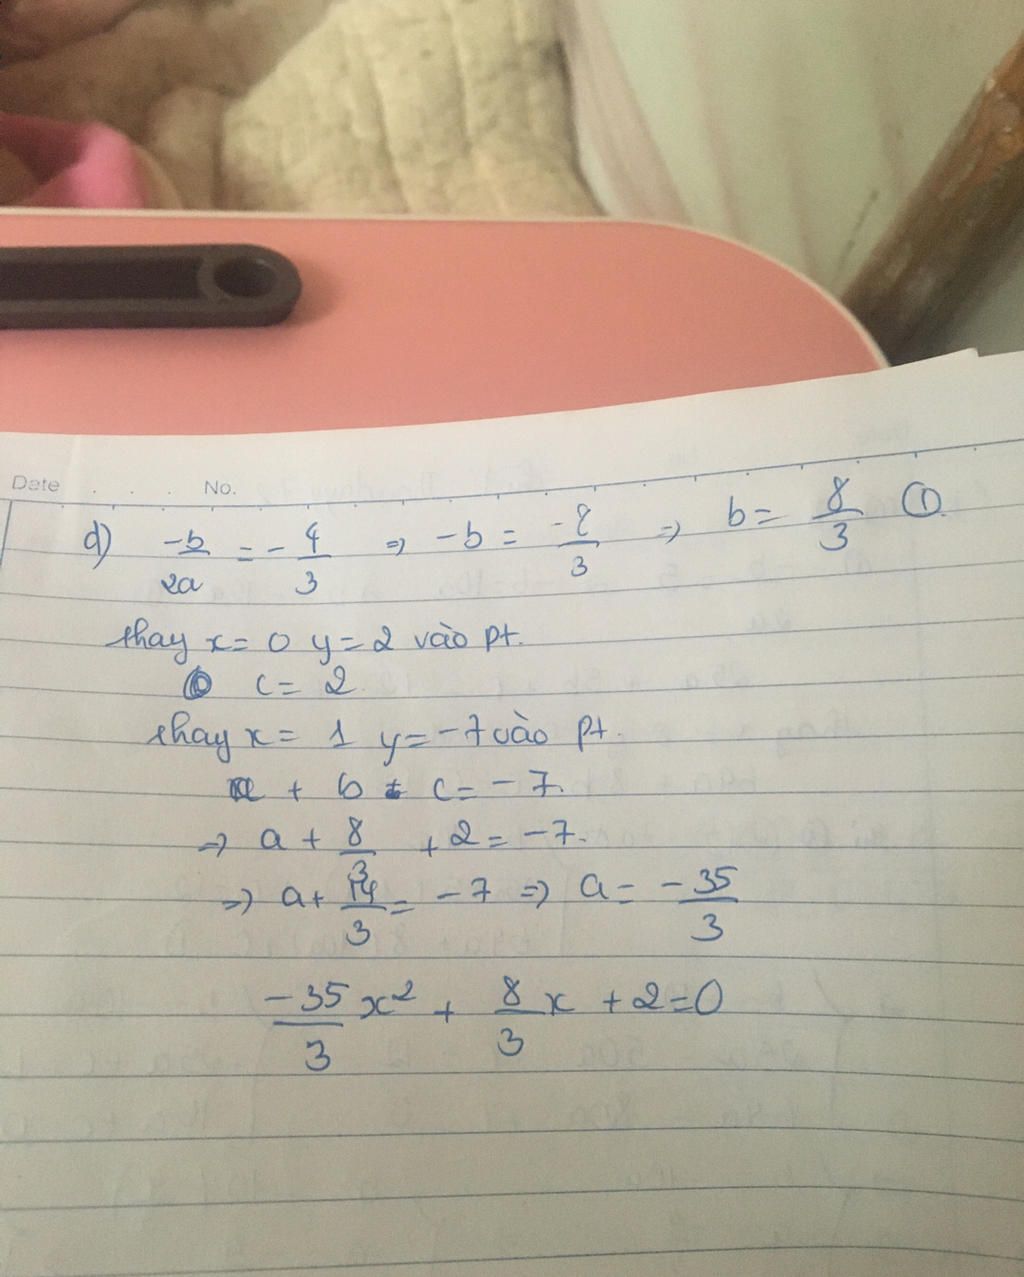 Date No.
d) -b/2a = - 4/3 => -b = -8/3 => b = 8/3 ①
thay x = 0 y = 2 vào pt.
c = 2
thay x = 1 y = -7 vào pt.
a + b + c = -7.
=> a + 8/3 + 2 = -7.
=> a + 14/3 = -7 => a = -35/3
-35/3 x² + 8/3 x + 2 = 0